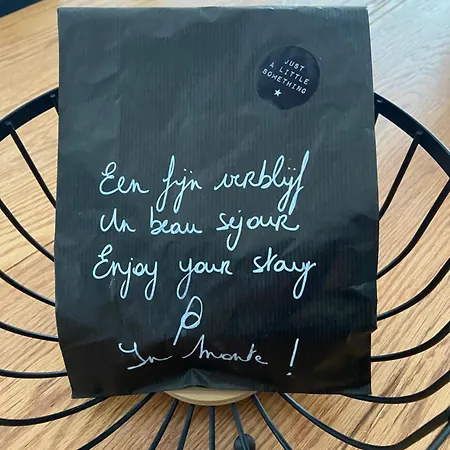 JUST
A LITTLE
SOMETHING
Een fijn verblijf
Un beau séjour
Enjoy your stay
In Monte !